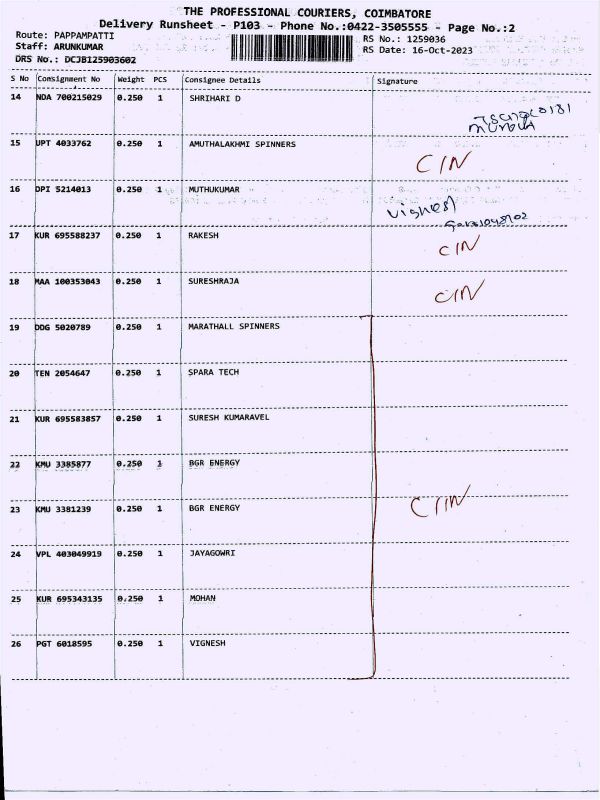 THE PROFESSIONAL COURIERS, COIMBATORE
Delivery Runsheet - P103 - Phone No.:0422-3505555 - Page No.:2
Route: PAPPAMPATTI RS No.: 1259036
Staff: ARUNKUMAR RS Date: 16-Oct-2023
DRS No.: DCJB125903602
S No Consignment No Weight PCS Consignee Details Signature
14 NDA 700215029 0.250 1 SHRIHARI D
15 UPT 4033762 0.250 1 AMUTHALAKHMI SPINNERS
CIN
16 DPI 5214013 0.250 1 MUTHUKUMAR
Vignesh
17 KUR 695588237 0.250 1 RAKESH
CIN
18 MAA 100353043 0.250 1 SURESHRAJA
CIN
19 DDG 5020789 0.250 1 MARATHALL SPINNERS
20 TEN 2054647 0.250 1 SPARA TECH
21 KUR 695583857 0.250 1 SURESH KUMARAVEL
22 KMU 3385877 0.250 1 BGR ENERGY
23 KMU 3381239 0.250 1 BGR ENERGY
CIN
24 VPL 403049919 0.250 1 JAYAGOWRI
25 KUR 695343135 0.250 1 MOHAN
26 PGT 6018595 0.250 1 VIGNESH